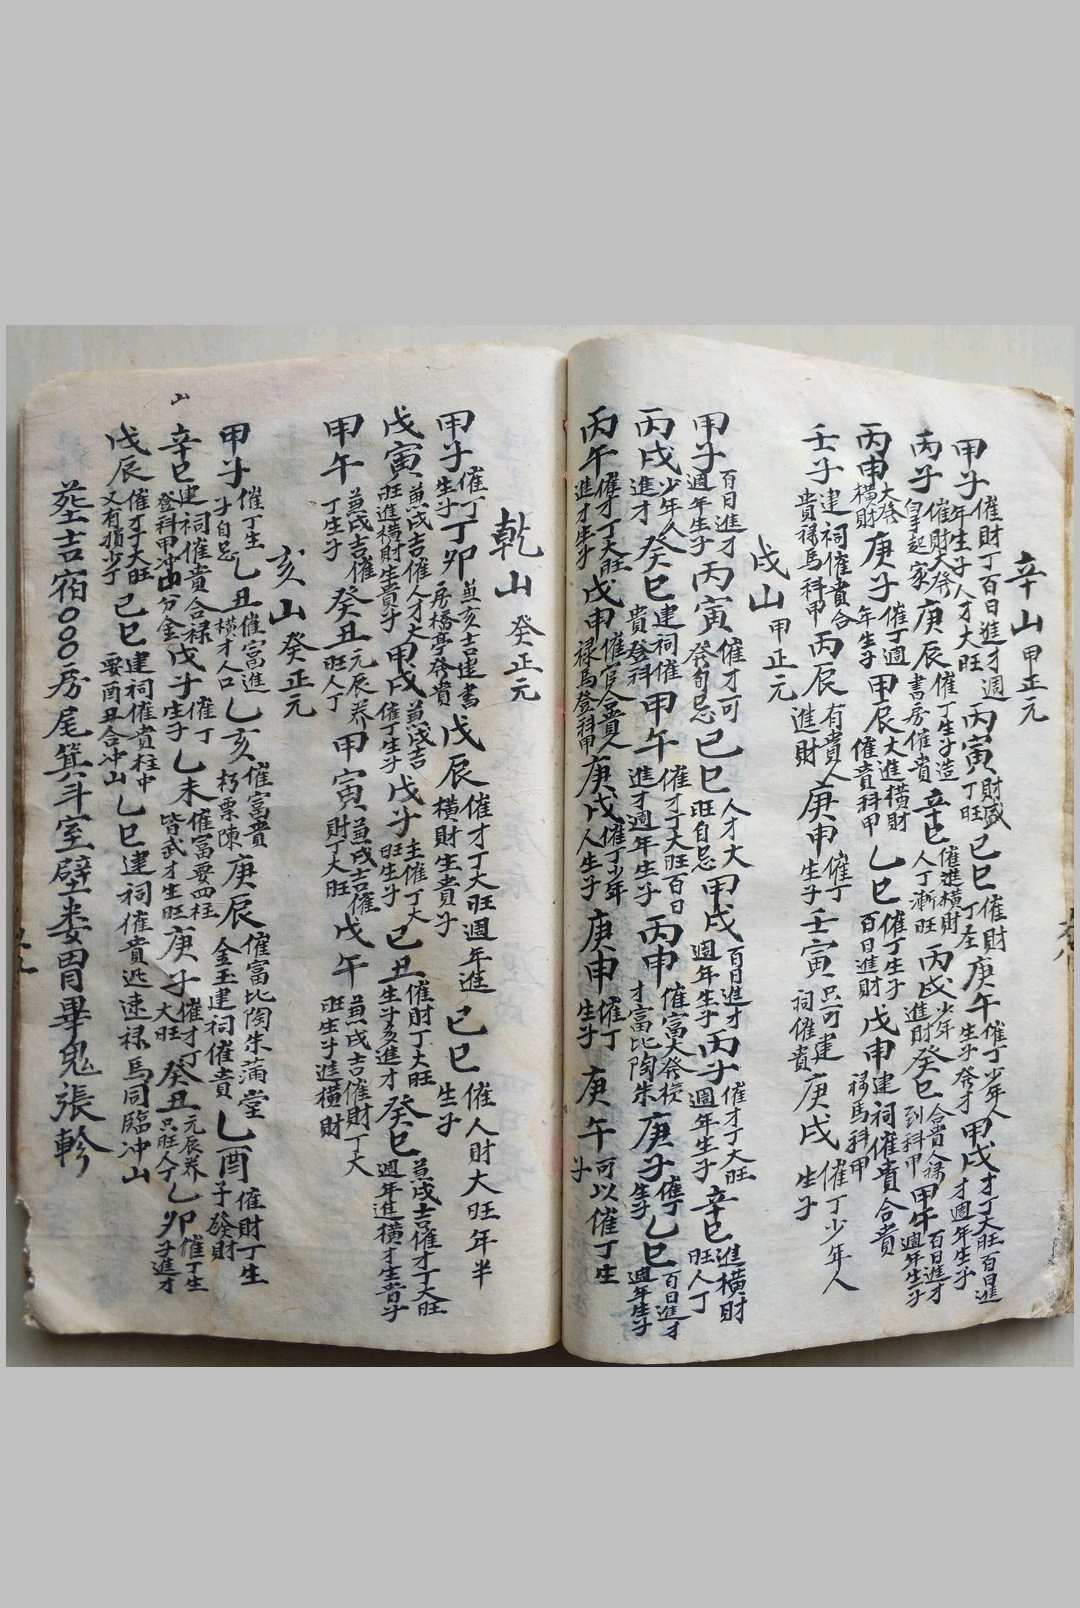 辛山甲正元
甲子催財丁百日進才週年生子人才大旺丙寅財盛丁旺己巳催財丁左庚午催丁少年人生子發才甲戌才丁大旺百日進才週年生子
丙子催財大發皇手起家庚辰催丁生子造書房催貴辛巳催進橫財人丁漸旺丙戌少年進財癸巳合貴人祿到科甲甲午百日進才週年生子
丙申大發橫財庚子催丁週年生子甲辰大進橫財催貴科甲乙巳催丁生子百日進財戊申建祠催貴合貴祿馬科甲
壬子建祠催貴合貴祿馬科甲丙辰有貴人進財庚申催丁生子壬寅只可建祠催貴庚戌催丁少年人生子
戌山甲正元
甲子百日進才週年生子丙寅催才可發旬忌己巳人才大旺自忌甲戌百日進才週年生子丙子催才丁大旺週年生子辛巳進橫財旺人丁
丙戌少年人進才癸巳建祠催貴登科甲午催才丁大旺百日進才週年生子丙申催富大發橫才富比陶朱庚子催丁生子乙巳百日進才週年生子
丙午催才丁大旺進才生子戊申催官合貴人祿馬登科甲庚戌催丁少年人生子庚申催丁生子庚午可以催丁生子
乾山癸正元
甲子催丁生子丁卯兼亥吉建書房橋亭發貴戊辰催才丁大旺週年進橫財生貴子己巳催人財大旺年半生子
戊寅兼戌吉催人才大旺進橫財生貴子甲戌兼戌吉催丁生子戊子主催丁大旺生子己丑催財丁大旺生子多進才癸巳兼戌吉催才丁大旺週年進橫才生貴子
甲午兼戌吉催丁生子癸丑元辰养旺人丁甲寅兼戌吉催財丁大旺戊午兼戌吉催財丁大旺生子進橫財
亥山癸正元
甲子催丁生子自足乙丑催富進橫才人口乙亥催富貴朽粟陳庚辰催富比陶朱蒲堂金玉建祠催貴乙酉催財丁生子發財
辛巳建祠催貴合祿登科甲冲山分金戊子催丁生子乙未催富要四柱皆武才生旺庚子催才丁大旺癸丑元辰养只旺人丁乙卯催丁生子進才
山
戊辰催才子大旺又有損少子己巳建祠催貴柱中要酉丑合冲山乙巳建祠催貴迯速祿馬同臨冲山
葬吉宿〇〇〇房尾箕斗室壁婁胃畢鬼張軫